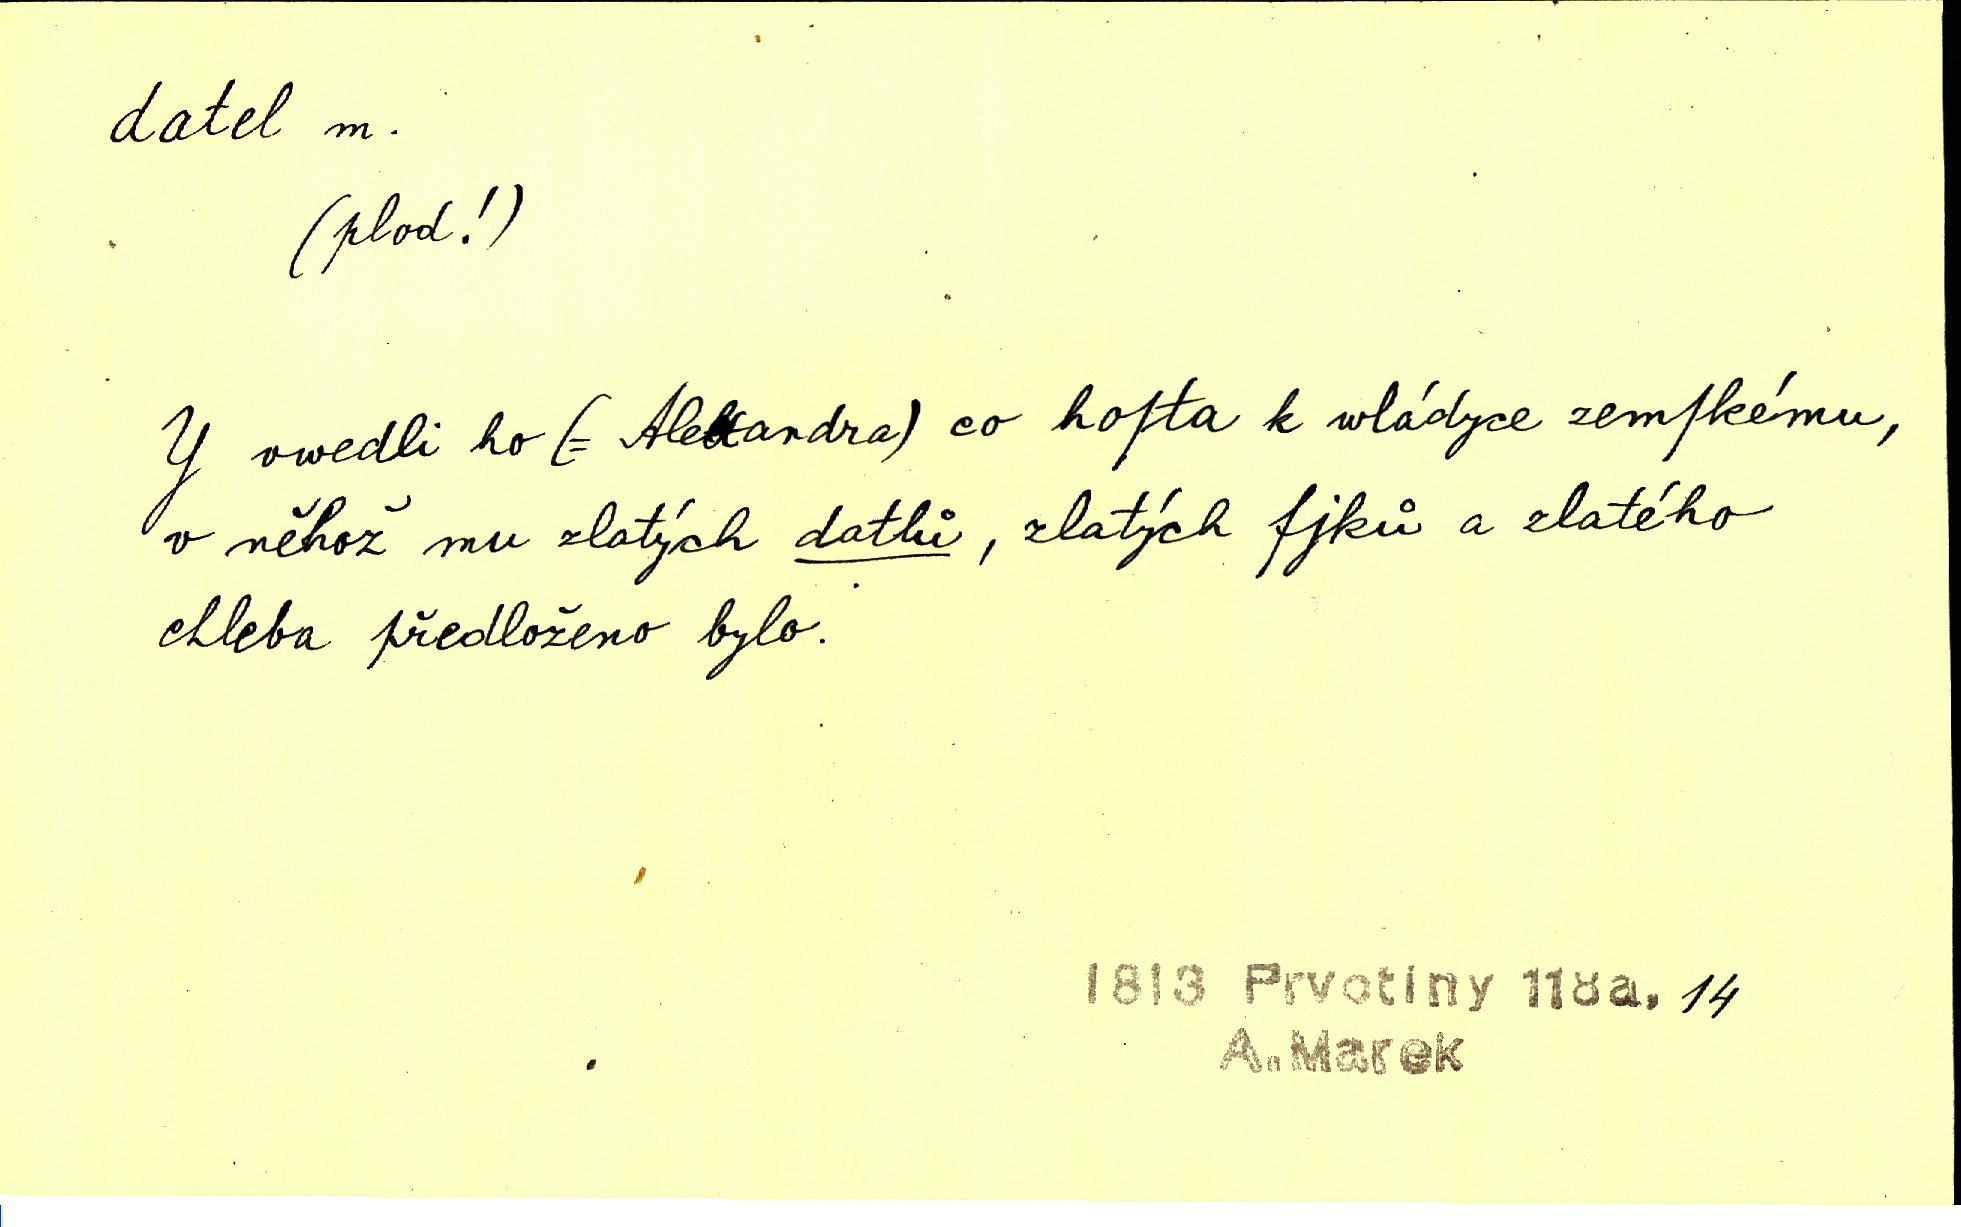 datel m.
(plod!)
Y vwedli ho (= Alexandra) co hoſta k wládyce zemſkému,
v něhož mu zlatých datlů, zlatých fjků a zlatého
chleba předloženo bylo.
1813 Prvotiny 118a, 14
A. Marek